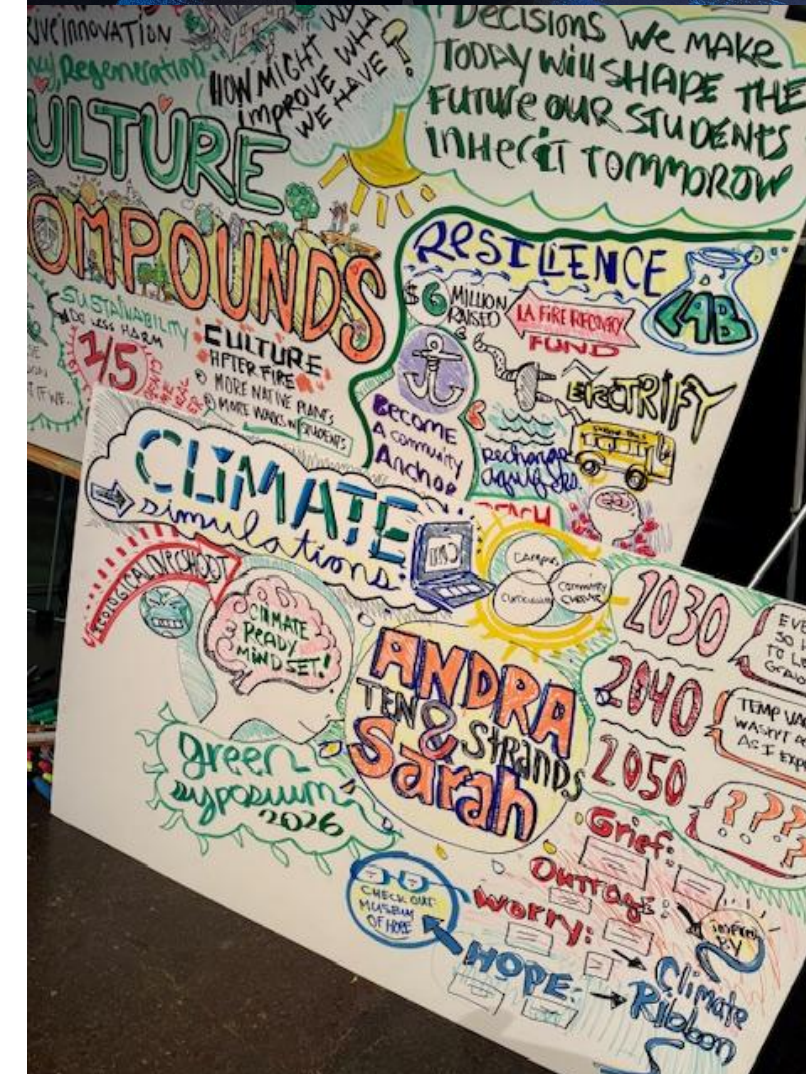 Drive INNOVATION
Regeneration
HOW MIGHT WE
IMPROVE WHAT
WE HAVE?
Decisions We MAKE
TODAY Will SHAPE THE
FUTURE OUR STUDENTS
INHERIT TOMMOROW
ULTURE
OMPOUNDS
SUSTAINABILITY
DO LESS HARM
1/5
CULTURE
AFTER FIRE
MORE NATIVE PLANTS
MORE WORK W/ STUDENTS
IF WE...
RESILIENCE
LAB
$6 MILLION
RAISED
LA FIRE RECOVERY
FUND
Become
A community
Anchor
ELECTRIFY
SCHOOL BUS
Recharge
aquifers
CLIMATE
simulations
CAMPUS
CURRICULUM
COMMUNITY
CULTURE
CLIMATE
READY
MINDSET!
ANDRA
TEN & STRANDS
Sarah
green
syposium
2026
2030
2040
2050
EVE
SO
TO L
TEMP VA
WASN'T A
AS I EXP
????
Grief:
Outrage:
Worry:
HOPE:
CHECK OUT
MUSEUM
OF HOPE
INSPIRED
BY
Climate
Ribbon